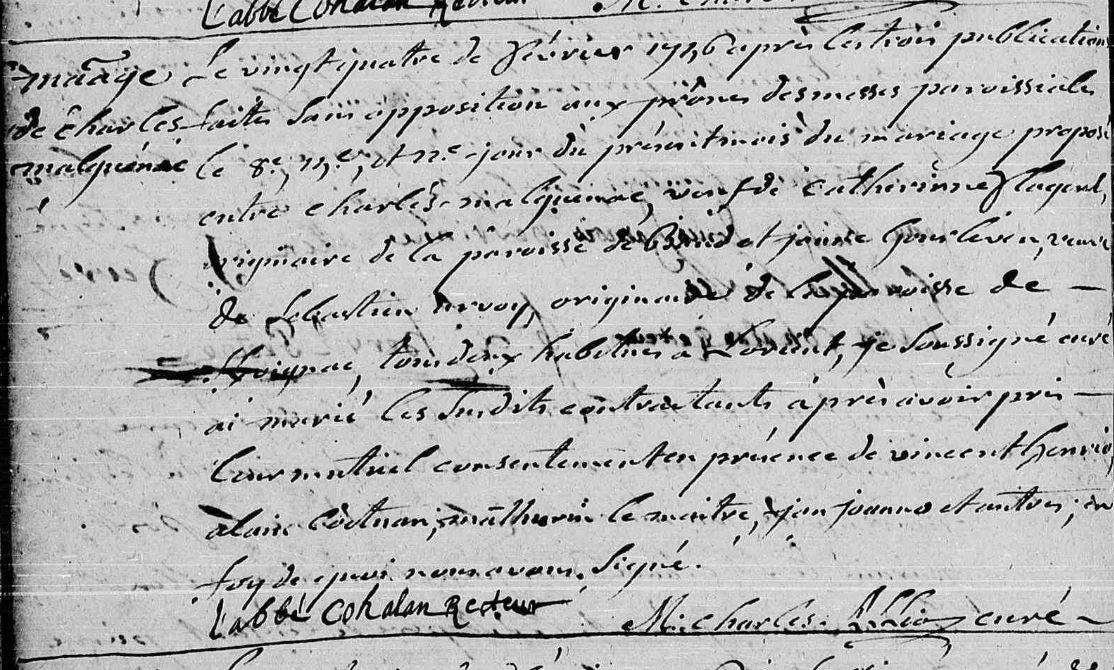 L'abbé Cohalan Recteur
mãage Le vingt quatre de février 1756 après les trois publications
de charles faites sans opposition aux prônes des messes paroissiales
malquénac le 8e, 15e, et 22e jour du présent mois du mariage proposé
entre charles malquénac, veuf de Catherinne
originaire de la paroisse de et jeanne Gourleven, veuve
de Sebastien originaire de paroisse de —
tous deux habitués à Lorient, je soussigné curé
ai marié les Susdits contractants après avoir pris —
leur mutuel consentement en présence de vincent henrio
alain mathurin le maitre, jan joanno et autres, en
foy de quoi nous avons signé.
L'abbé Cohalan Recteur M. charles curé